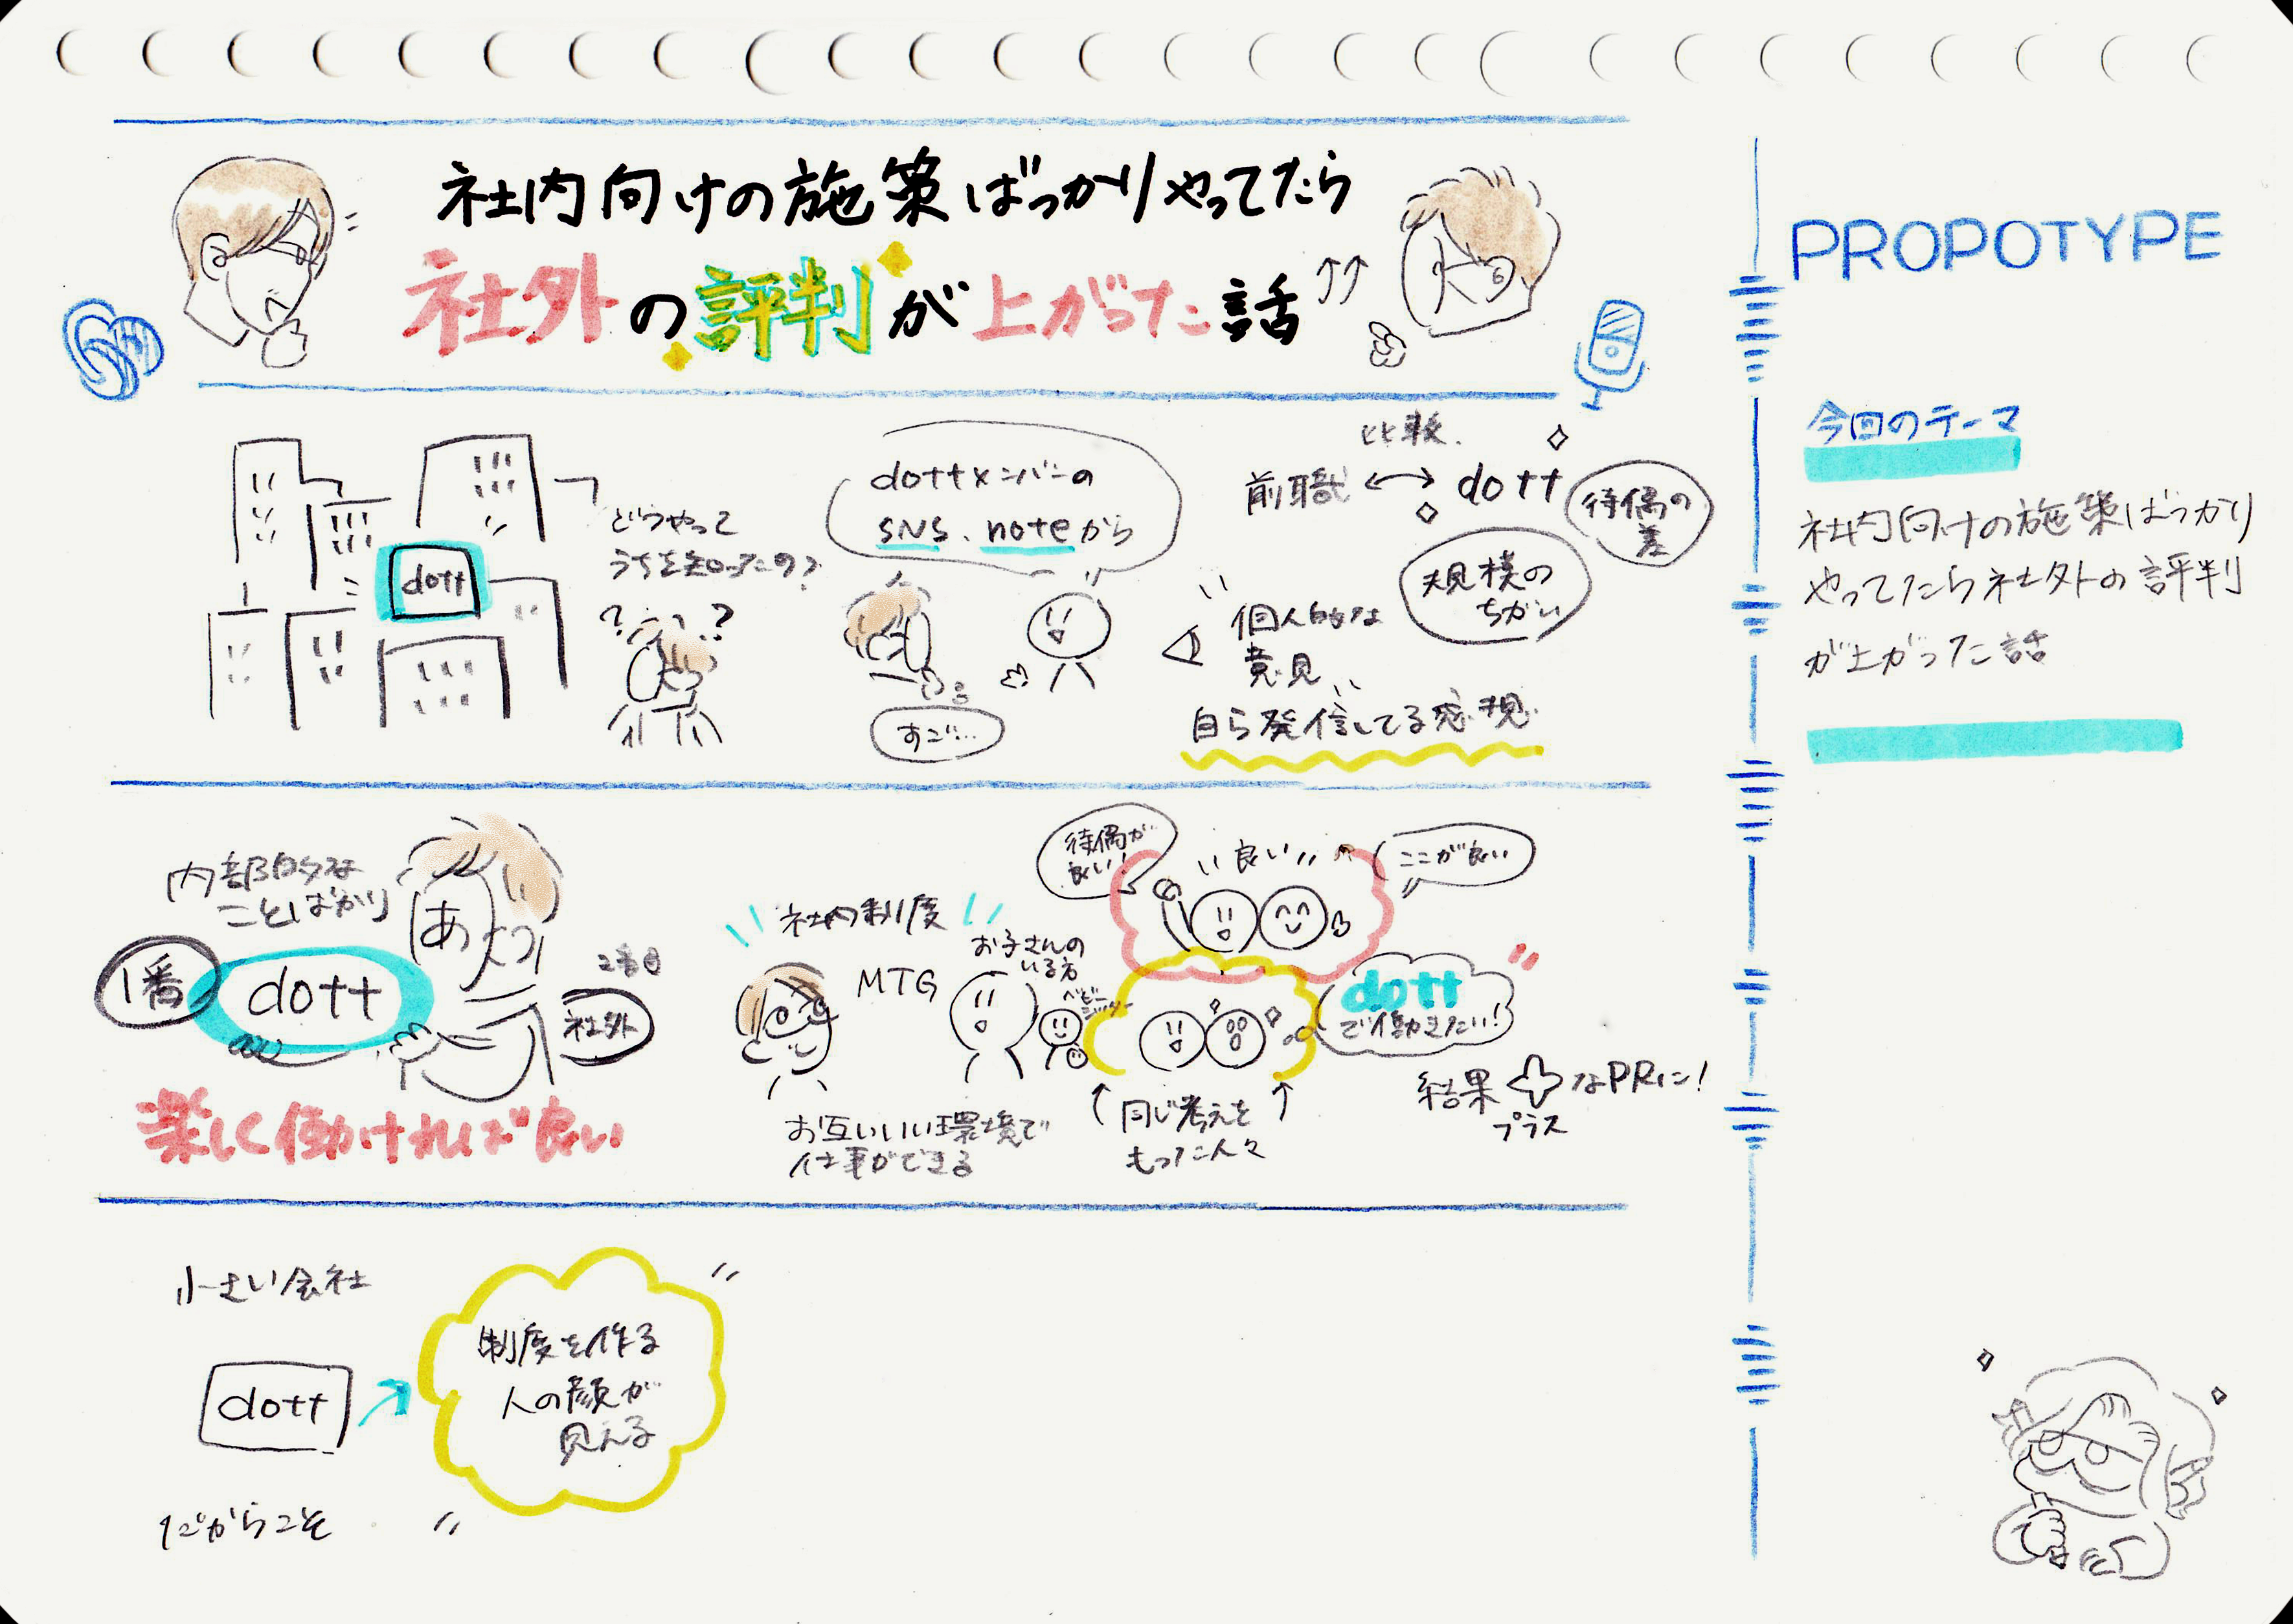 社内向けの施策ばっかりやってたら
社外の評判が上がった話
PROPOTYPE
今回のテーマ
社内向けの施策ばっかり
やってたら社外の評判
が上がった話
dott
どうやって
うちを知ったの?
??
dottメンバーの
SNS、noteから
すごい…
比較
前職 ↔ dott
待偶の
差
規模の
ちがい
個人的な
意見
自ら発信してる感・現
内部的な
ことばかり
あべ
1番
dott
2番目
社外
楽しく働ければ良い
社内制度
MTG
お子さんの
いる方
ベビー
シッター
お互いいい環境で
仕事ができる
待偶が
良い!
良い
ここが良い
dott
で働きたい!
同じ考えを
もった人々
結果 なPRに!
プラス
小さい会社
dott
制度を作る
人の顔が
見える
だからこそ